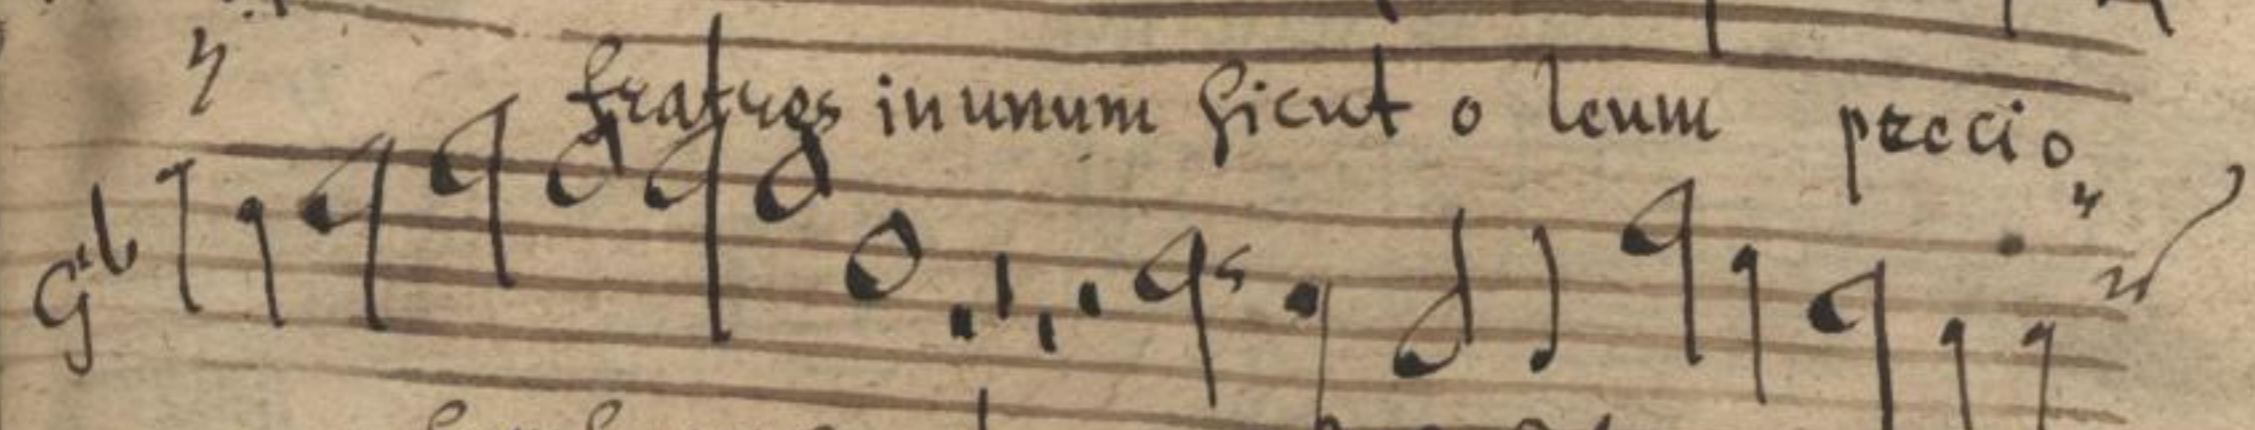 fratres in unum sicut o leum precio